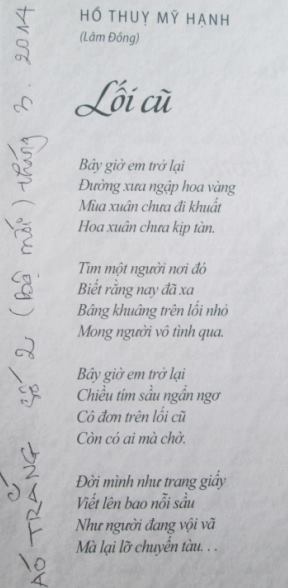 HỒ THUỴ MỸ HẠNH
(Lâm Đồng)
Lối cũ
Bây giờ em trở lại
Đường xưa ngập hoa vàng
Mùa xuân chưa đi khuất
Hoa xuân chưa kịp tàn.
Tìm một người nơi đó
Biết rằng nay đã xa
Bâng khuâng trên lối nhỏ
Mong người vô tình qua.
Bây giờ em trở lại
Chiều tím sầu ngẩn ngơ
Cô đơn trên lối cũ
Còn có ai mà chờ.
Đời mình như trang giấy
Viết lên bao nỗi sầu
Như người đang vội vã
Mà lại lỡ chuyến tàu. . .
ÁO TRẮNG số 2 (bộ mới) tháng 3. 2014